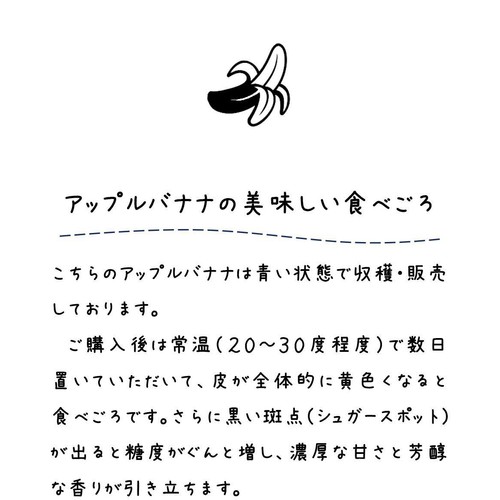 アップルバナナの美味しい食べごろ
こちらのアップルバナナは青い状態で収穫・販売
しております。
ご購入後は常温(20〜30度程度)で数日
置いていただいて、皮が全体的に黄色くなると
食べごろです。さらに黒い斑点(シュガースポット)
が出ると糖度がぐんと増し、濃厚な甘さと芳醇
な香りが引き立ちます。